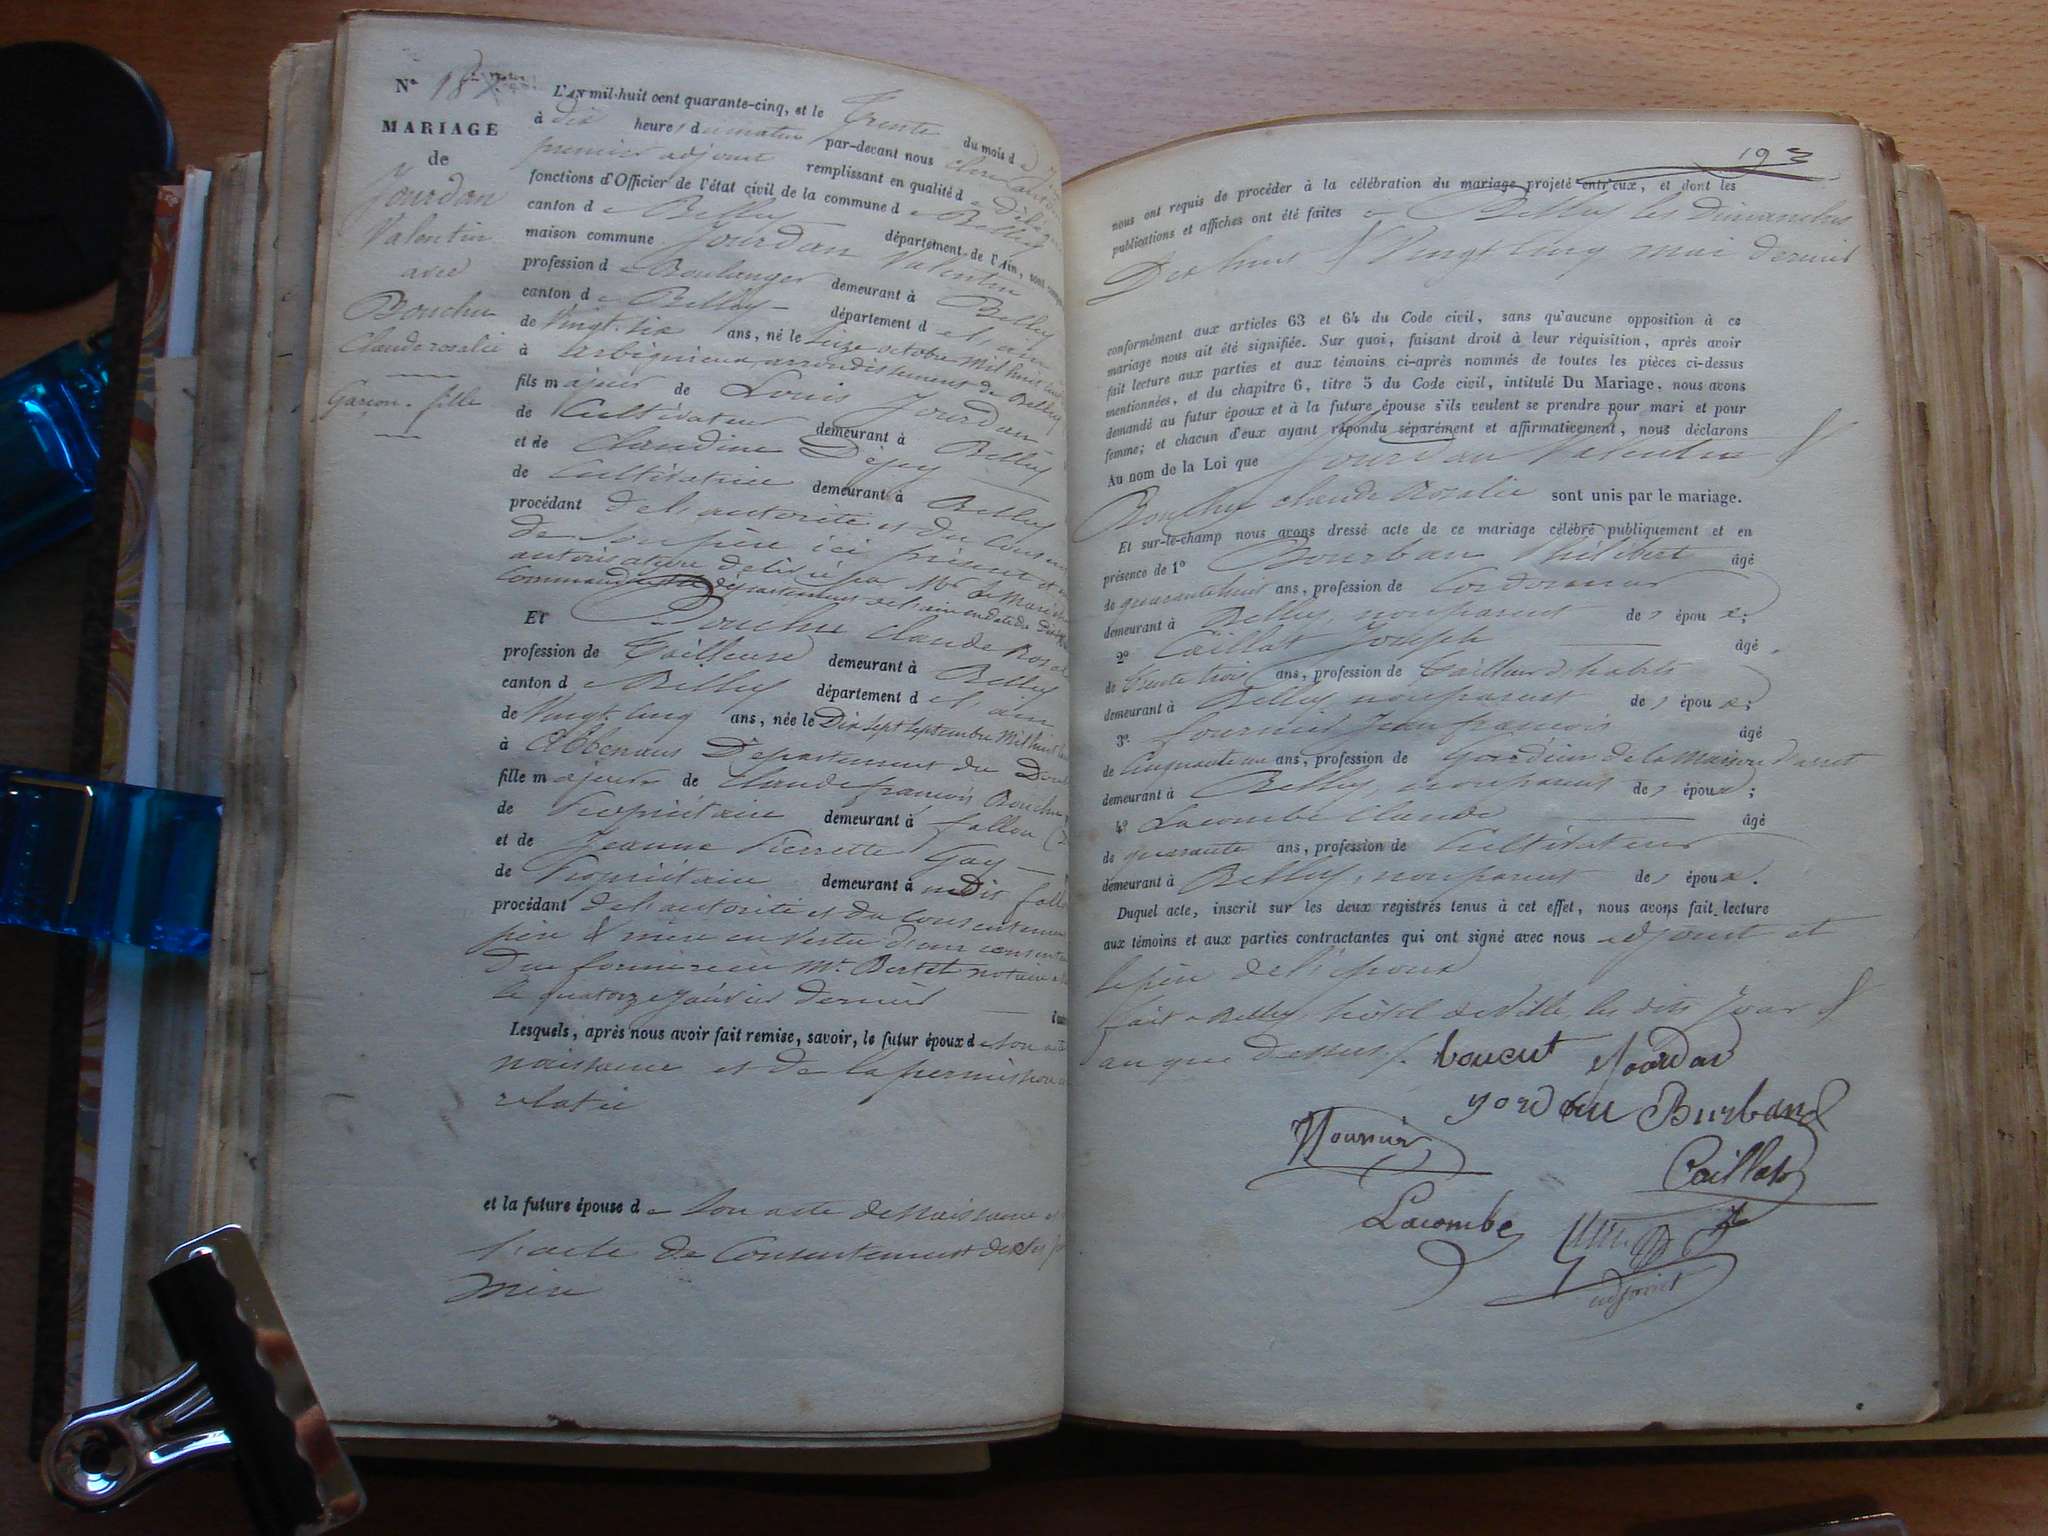 N° 18
MARIAGE
de
Jourdan
Valentin
avec
Bouchu
Claude rosalie
Garçon. fille
L'AN mil-huit cent quarante-cinq, et le Trente du mois d
à dix heures du matin par-devant nous
premier adjoint remplissant en qualité de Délégué
fonctions d'Officier de l'état civil de la commune de Belley
canton de Belley département de l'Ain, sont
maison commune Jourdan Valentin
profession de Boulanger demeurant à Belley
canton de Belley département de l'ain
de Vingt-six ans, né le seize octobre mil huit cent
à arbignieu, arrondissement de Belley
fils majeur de Louis Jourdan
de Cultivateur demeurant à Belley
et de Claudine Dejey
de Cultivatrice demeurant à Belley
procédant de l'autorité et du
de son père ici présent et
autorisation délivrée par Mr le
Commandant le département de l'ain en date du
Et Bouchu Claude
profession de Tailleuse demeurant à Belley
canton de Belley département de l'ain
de Vingt-cinq ans, née le Dix sept septembre mil huit
à Abbenans Département du
fille majeure de Claude françois Bouchu
de Propriétaire demeurant à fallon
et de Jeanne Pierrette Gay
de Propriétaire demeurant à
procédant de l'autorité et du
père & mère en vertu d'un
Mr. Bertet notaire
le quatorze janvier dernier
Lesquels, après nous avoir fait remise, savoir, le futur époux de son acte
naissance et de la permission
relatée
et la future épouse de son acte de naissance et
l'acte de Consentement de ses
mère
193
nous ont requis de procéder à la célébration du mariage projeté entr'eux, et dont les
publications et affiches ont été faites à Belley les dimanches
Dix huit & Vingt cinq mai dernier
conformément aux articles 63 et 64 du Code civil, sans qu'aucune opposition à ce
mariage nous ait été signifiée. Sur quoi, faisant droit à leur réquisition, après avoir
fait lecture aux parties et aux témoins ci-après nommés de toutes les pièces ci-dessus
mentionnées, et du chapitre 6, titre 5 du Code civil, intitulé Du Mariage, nous avons
demandé au futur époux et à la future épouse s'ils veulent se prendre pour mari et pour
femme; et chacun d'eux ayant répondu séparément et affirmativement, nous déclarons
Au nom de la Loi que Jourdan Valentin &
Bouchu Claude Rosalie sont unis par le mariage.
Et sur-le-champ nous avons dressé acte de ce mariage célébré publiquement et en
présence de 1° Bourban Philibert âgé
de quarante huit ans, profession de Cordonnier
demeurant à Belley, non parent des époux;
2° Caillat Joseph âgé
de trente trois ans, profession de Tailleur d'habits
demeurant à Belley non parent des époux;
3° fournier Jean françois âgé
de Cinquante un ans, profession de Gardien de la Maison d'arret
demeurant à Belley, non parent des époux;
4° Lacombe Claude âgé
de quarante ans, profession de Cultivateur
demeurant à Belley, non parent des époux.
Duquel acte, inscrit sur les deux registres tenus à cet effet, nous avons fait lecture
aux témoins et aux parties contractantes qui ont signé avec nous adjoint et
le père de l'époux
fait à Belley, hôtel de Ville, les dits jour &
an que dessus.
boucut Jourdan
Burband
fournier
Caillat
Lacombe
adjoint